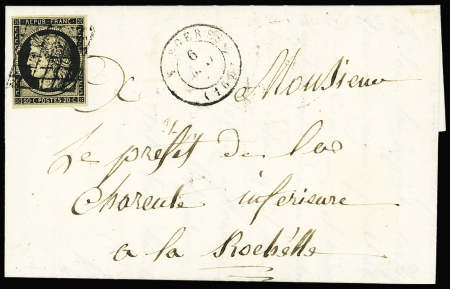 REPUB. FRANC.
20 C POSTES 20 C
6
(16)
Monsieur
Le prefet de la
Charente inferieure
a la Rochelle